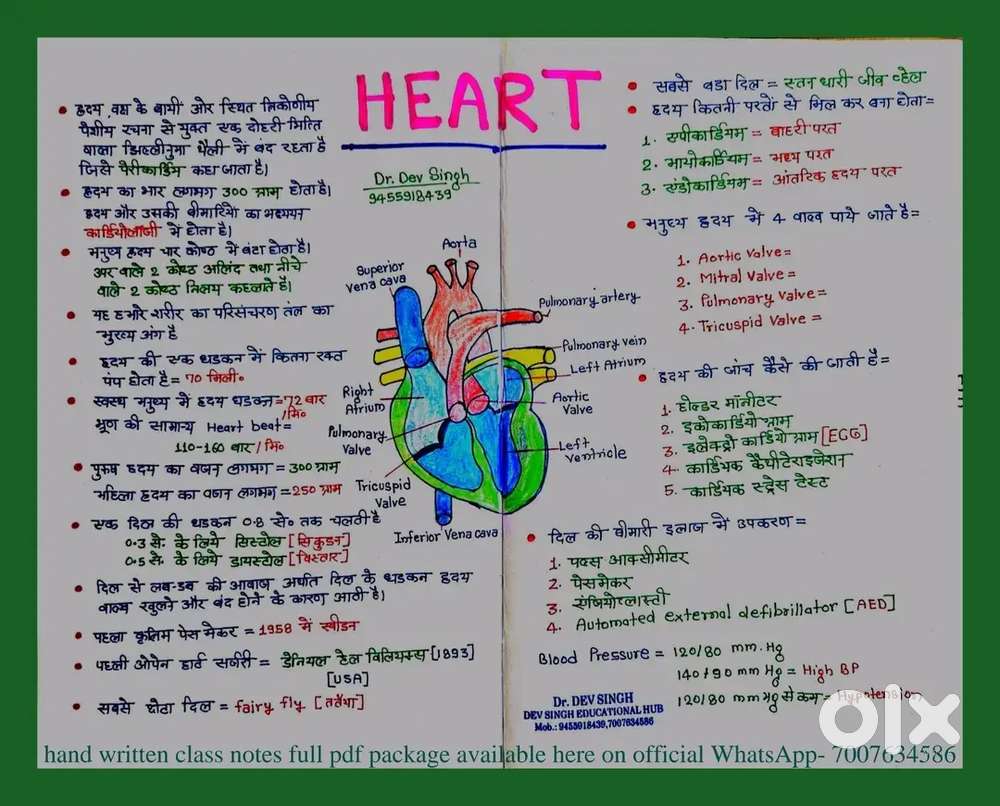 HEART
Dr. Dev Singh
9455918439
• हृदय, वक्ष के बायीं ओर स्थित त्रिकोणीय
पेशीय रचना से युक्त एक दोहरी भित्ति
वाला झिल्लीनुमा थैली में बंद रहता है
जिसे पैरीकार्डियम कहा जाता है।
• हृदय का भार लगभग 300 ग्राम होता है।
हृदय और उसकी बीमारियों का अध्ययन
कार्डियोलॉजी में होता है।
• मनुष्य हृदय चार कोष्ठ में बंटा होता है।
वाले 2 कोष्ठ अलिंद तथा नीचे
वाले 2 कोष्ठ निलय कहलाते है।
• यह हमारे शरीर का परिसंचरण तंत्र का
मुख्य अंग है
• हृदय की एक धडकन में कितना रक्त
पंप होता है = 70 मिली०
• स्वस्थ मनुष्य में हृदय धडकन = 72 बार
/मि०
भ्रूण की सामान्य Heart beat =
110-160 बार/मि०
• पुरुष हृदय का वजन लगभग = 300 ग्राम
महिला हृदय का वजन लगभग = 250 ग्राम
• एक दिल की धडकन 0.8 से० तक चलती है
0.3 से. के लिये सिस्टोल [सिकुडन]
0.5 से. के लिये डायस्टोल [विस्तार]
• दिल से लब-डब की आवाज अर्थात दिल के धडकन हृदय
वाल्व खुलने और बंद होने के कारण आती है।
• पहला कृत्रिम पेस मेकर = 1958 में स्वीडन
• पहली ओपेन हार्ट सर्जरी = डेनियल हेल विलियम्स [1893]
[USA]
• सबसे छोटा दिल = fairy fly [ततैया]
Aorta
Superior
Vena cava
Pulmonary artery
Pulmonary vein
Left Atrium
Right
Atrium
Aortic
Valve
Pulmonary
Valve
Left
Ventricle
Tricuspid
Valve
Inferior Vena cava
• सबसे बडा दिल = स्तन धारी जीव व्हेल
• हृदय कितनी परतों से मिल कर बना होता =
1. एपीकार्डियम = बाहरी परत
2. मायोकार्डियम = मध्य परत
3. एंडोकार्डियम = आंतरिक हृदय परत
• मनुष्य हृदय में 4 वाल्व पाये जाते है =
1. Aortic Valve =
2. Mitral Valve =
3. Pulmonary Valve =
4. Tricuspid Valve =
• हृदय की जांच कैसे की जाती है =
1. होल्डर मॉनीटर
2. इकोकार्डियो ग्राम
3. इलेक्ट्रो कार्डियो ग्राम [ECG]
4. कार्डियक कैथीटेराइजेशन
5. कार्डियक स्ट्रेस टेस्ट
• दिल की बीमारी इलाज में उपकरण =
1. पल्स आक्सीमीटर
2. पेसमेकर
3. एंजियोप्लास्टी
4. Automated external defibrillator [AED]
Blood Pressure = 120/80 mm.Hg
140+90 mm Hg = High BP
120/80 mm Hg से कम = Hypotension
Dr. DEV SINGH
DEV SINGH EDUCATIONAL HUB
Mob.: 9455918439,7007634586
olx
hand written class notes full pdf package available here on official WhatsApp- 7007634586